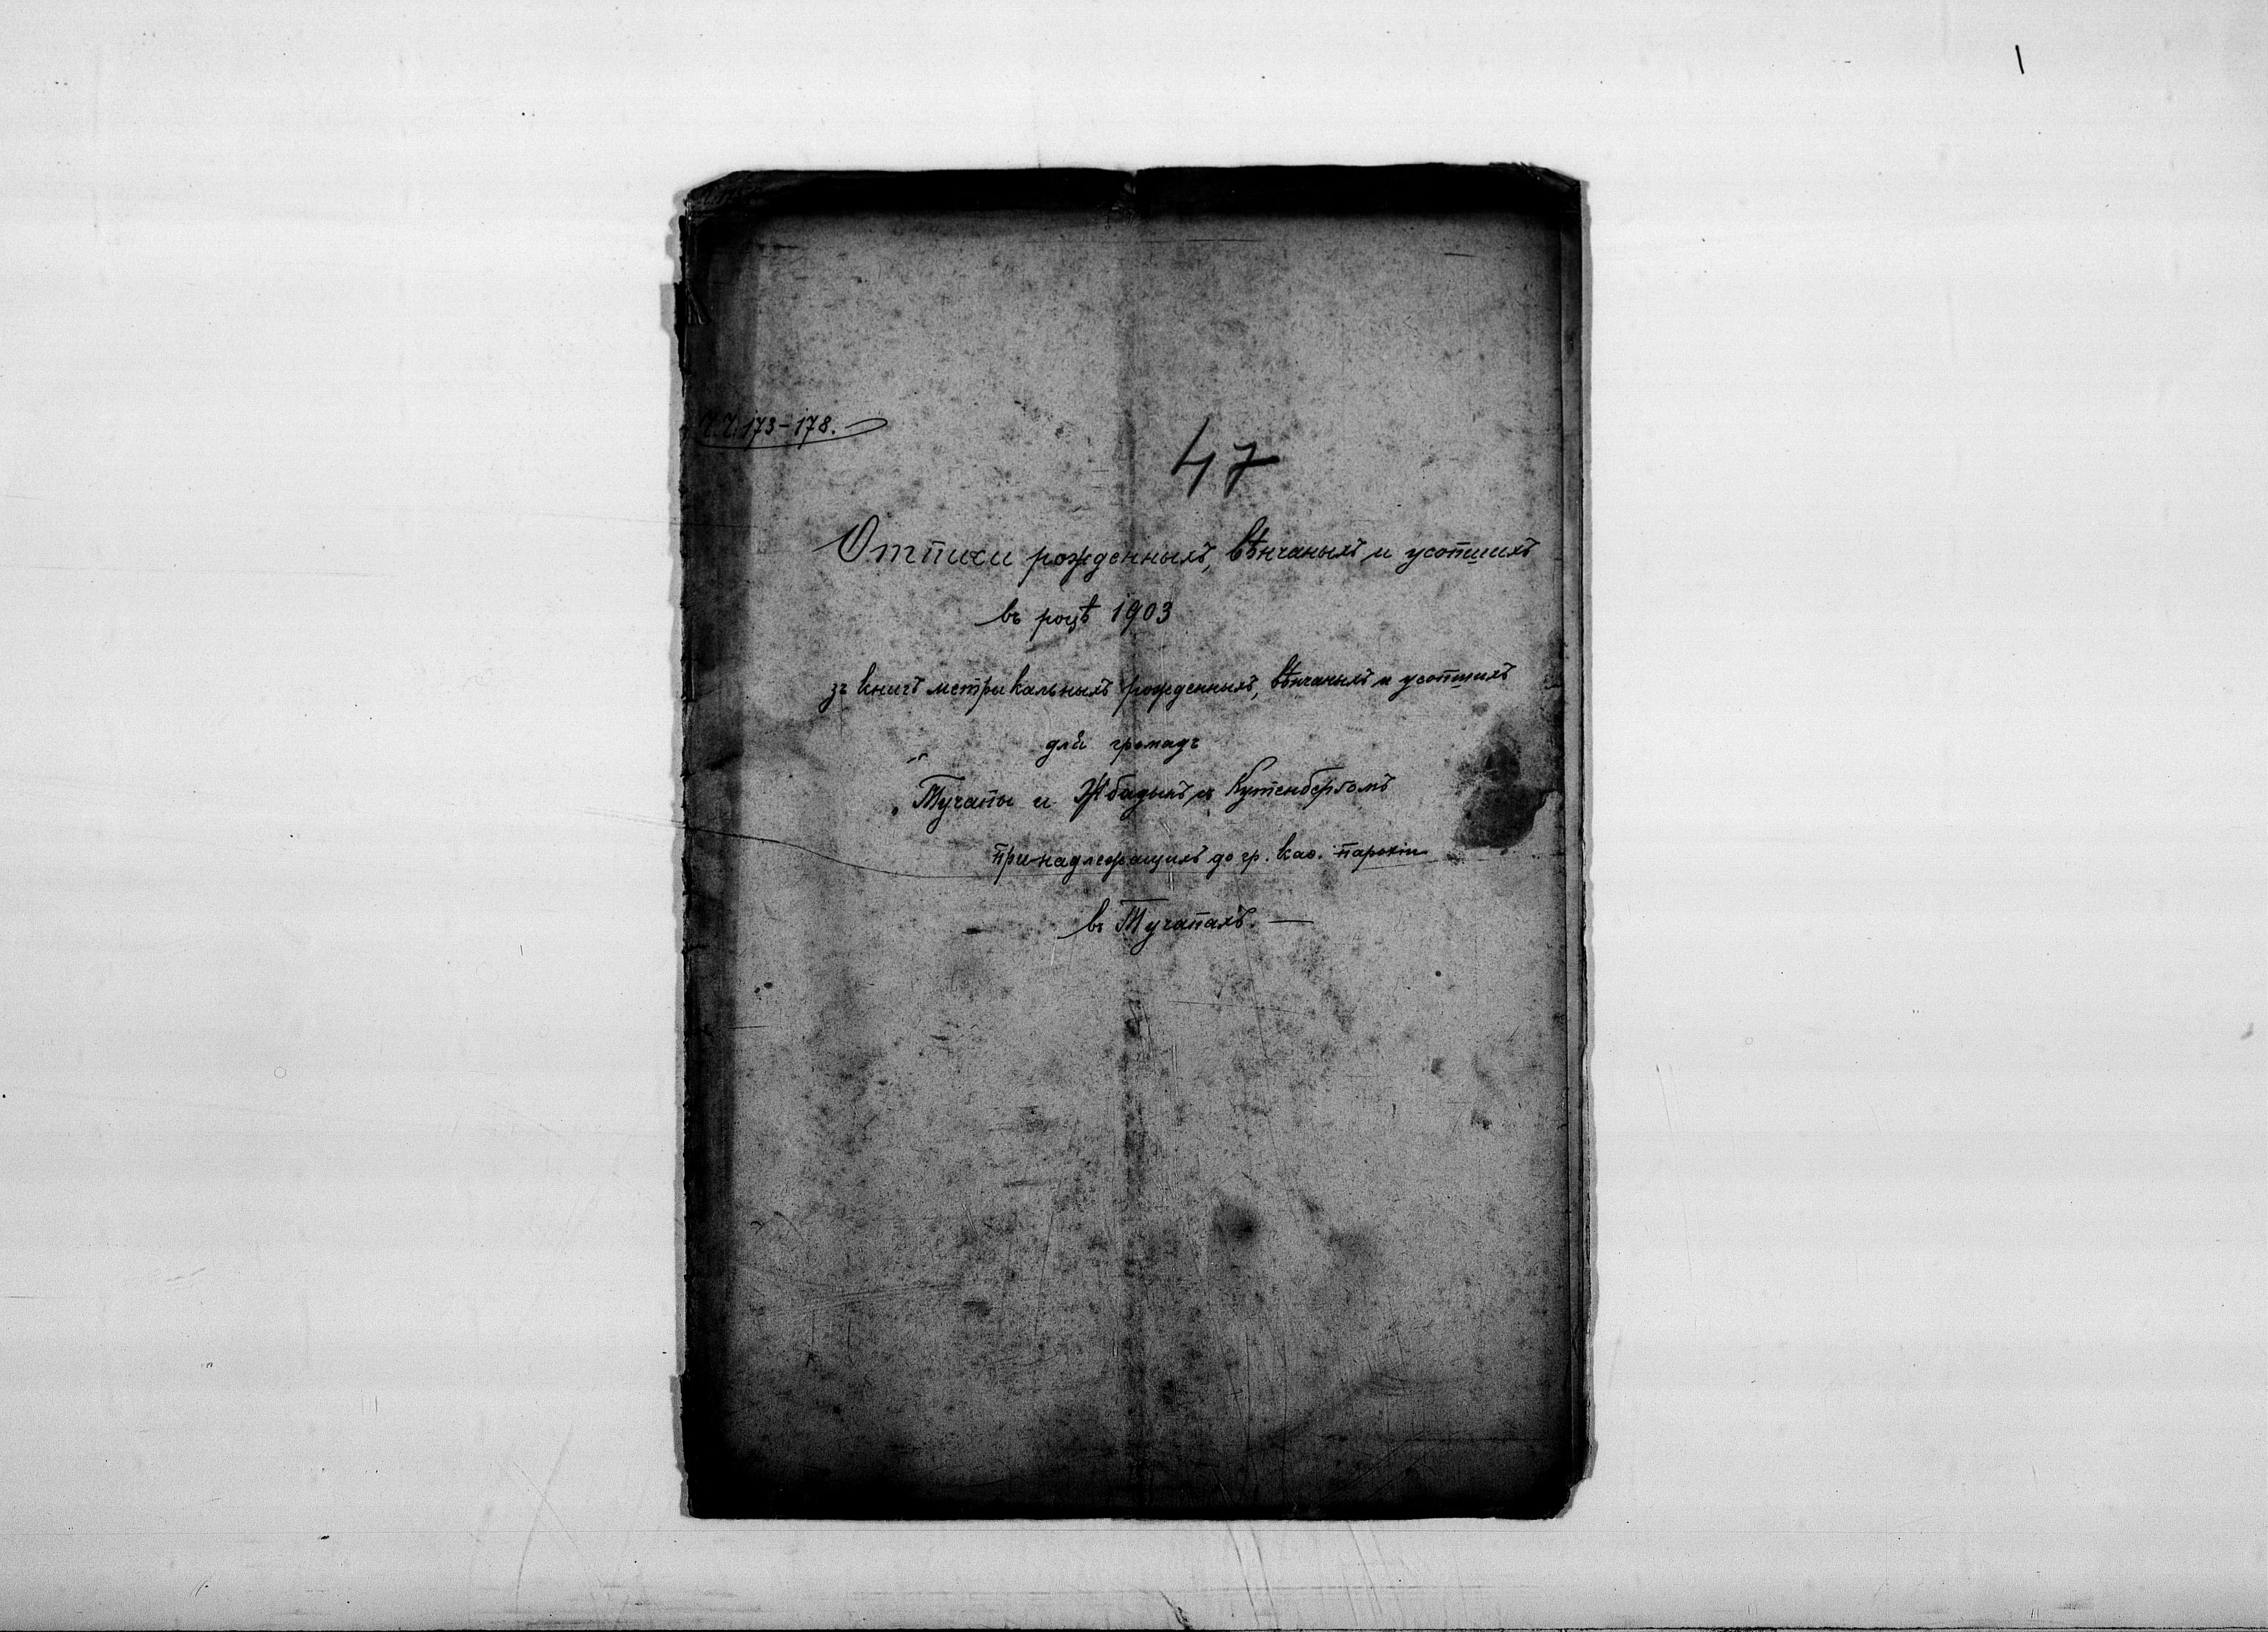 Ч.Ч. 173–178.
47
Отписи рожденныхъ, вѣнчаныхъ и усопшихъ
въ роцѣ 1903
зъ книгъ метрикальныхъ рожденныхъ, вѣнчаныхъ и усопшихъ
для громадъ
Тучапы и Жбадынъ, съ Кутенбергомъ
принадлежащихъ до гр. каѳ. парохіи
въ Тучапахъ. —